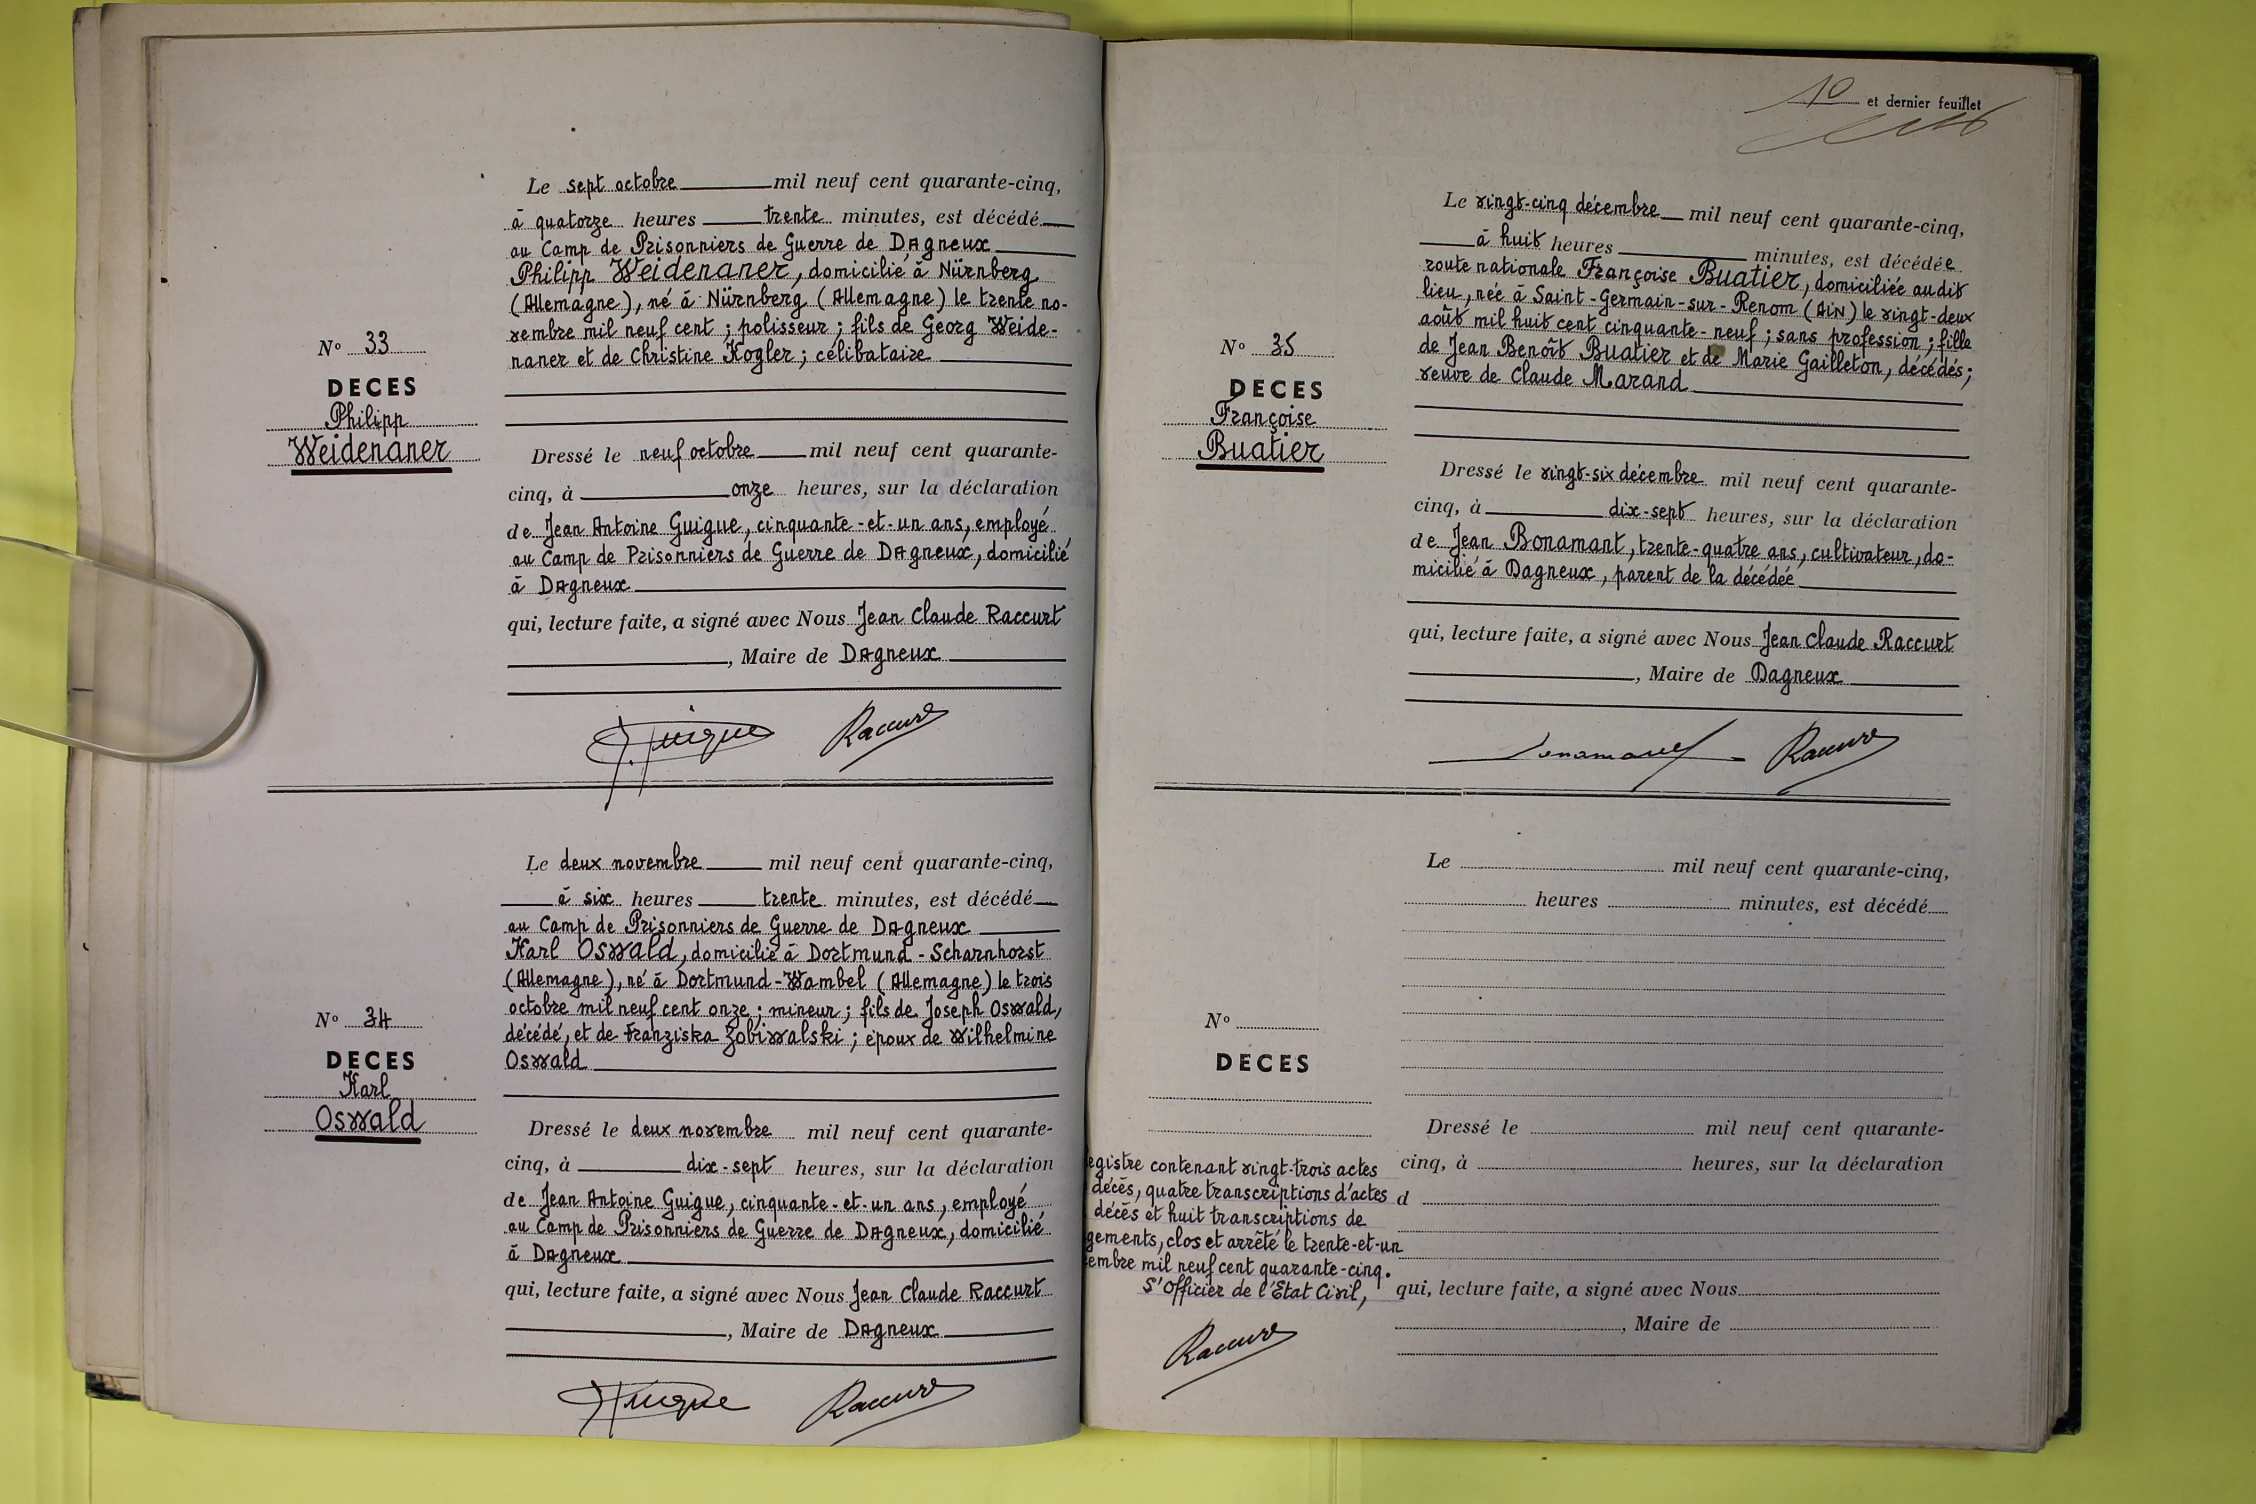 Le sept octobre mil neuf cent quarante-cinq,
à quatorze heures trente minutes, est décédé
au Camp de Prisonniers de Guerre de Dagneux
Philipp Weidenaner, domicilié à Nürnberg
(Allemagne), né à Nürnberg (Allemagne) le trente no-
vembre mil neuf cent ; polisseur ; fils de Georg Weide-
naner et de Christine Kogler ; célibataire
N° 33
DECES
Philipp
Weidenaner
Dressé le neuf octobre mil neuf cent quarante-
cinq, à onze heures, sur la déclaration
de Jean Antoine Guigue, cinquante-et-un ans, employé
au Camp de Prisonniers de Guerre de Dagneux, domicilié
à Dagneux
qui, lecture faite, a signé avec Nous Jean Claude Raccurt
, Maire de Dagneux
Guigue Raccurt
Le deux novembre mil neuf cent quarante-cinq,
à six heures trente minutes, est décédé
au Camp de Prisonniers de Guerre de Dagneux
Karl Oswald, domicilié à Dortmund-Scharnhorst
(Allemagne), né à Dortmund-Wambel (Allemagne) le trois
octobre mil neuf cent onze ; mineur ; fils de Joseph Oswald,
décédé, et de Franziska Zobiwalski ; époux de Wilhelmine
Oswald
N° 34
DECES
Karl
Oswald
Dressé le deux novembre mil neuf cent quarante-
cinq, à dix-sept heures, sur la déclaration
de Jean Antoine Guigue, cinquante-et-un ans, employé
au Camp de Prisonniers de Guerre de Dagneux, domicilié
à Dagneux
qui, lecture faite, a signé avec Nous Jean Claude Raccurt
, Maire de Dagneux
Guigue Raccurt
10 et dernier feuillet
Le vingt-cinq décembre mil neuf cent quarante-cinq,
à huit heures minutes, est décédée
route nationale Françoise Buatier, domiciliée audit
lieu, née à Saint-Germain-sur-Renom (Ain) le vingt-deux
août mil huit cent cinquante-neuf ; sans profession ; fille
de Jean Benoît Buatier et de Marie Gailleton, décédés ;
veuve de Claude Marand
N° 35
DECES
Françoise
Buatier
Dressé le vingt-six décembre mil neuf cent quarante-
cinq, à dix-sept heures, sur la déclaration
de Jean Bonamant, trente-quatre ans, cultivateur, do-
micilié à Dagneux, parent de la décédée
qui, lecture faite, a signé avec Nous Jean Claude Raccurt
, Maire de Dagneux
Raccurt
Le mil neuf cent quarante-cinq,
heures minutes, est décédé
N°
DECES
Dressé le mil neuf cent quarante-
cinq, à heures, sur la déclaration
d
qui, lecture faite, a signé avec Nous
, Maire de
egistre contenant vingt-trois actes
décès, quatre transcriptions d'actes
décès et huit transcriptions de
gements, clos et arrêté le trente-et-un
embre mil neuf cent quarante-cinq.
L'Officier de l'Etat Civil,
Raccurt